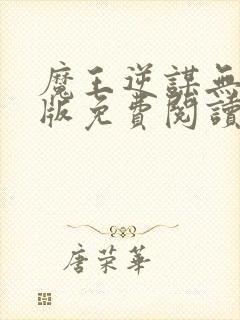 魔王逆謀無
版免費閱讀
唐荣華